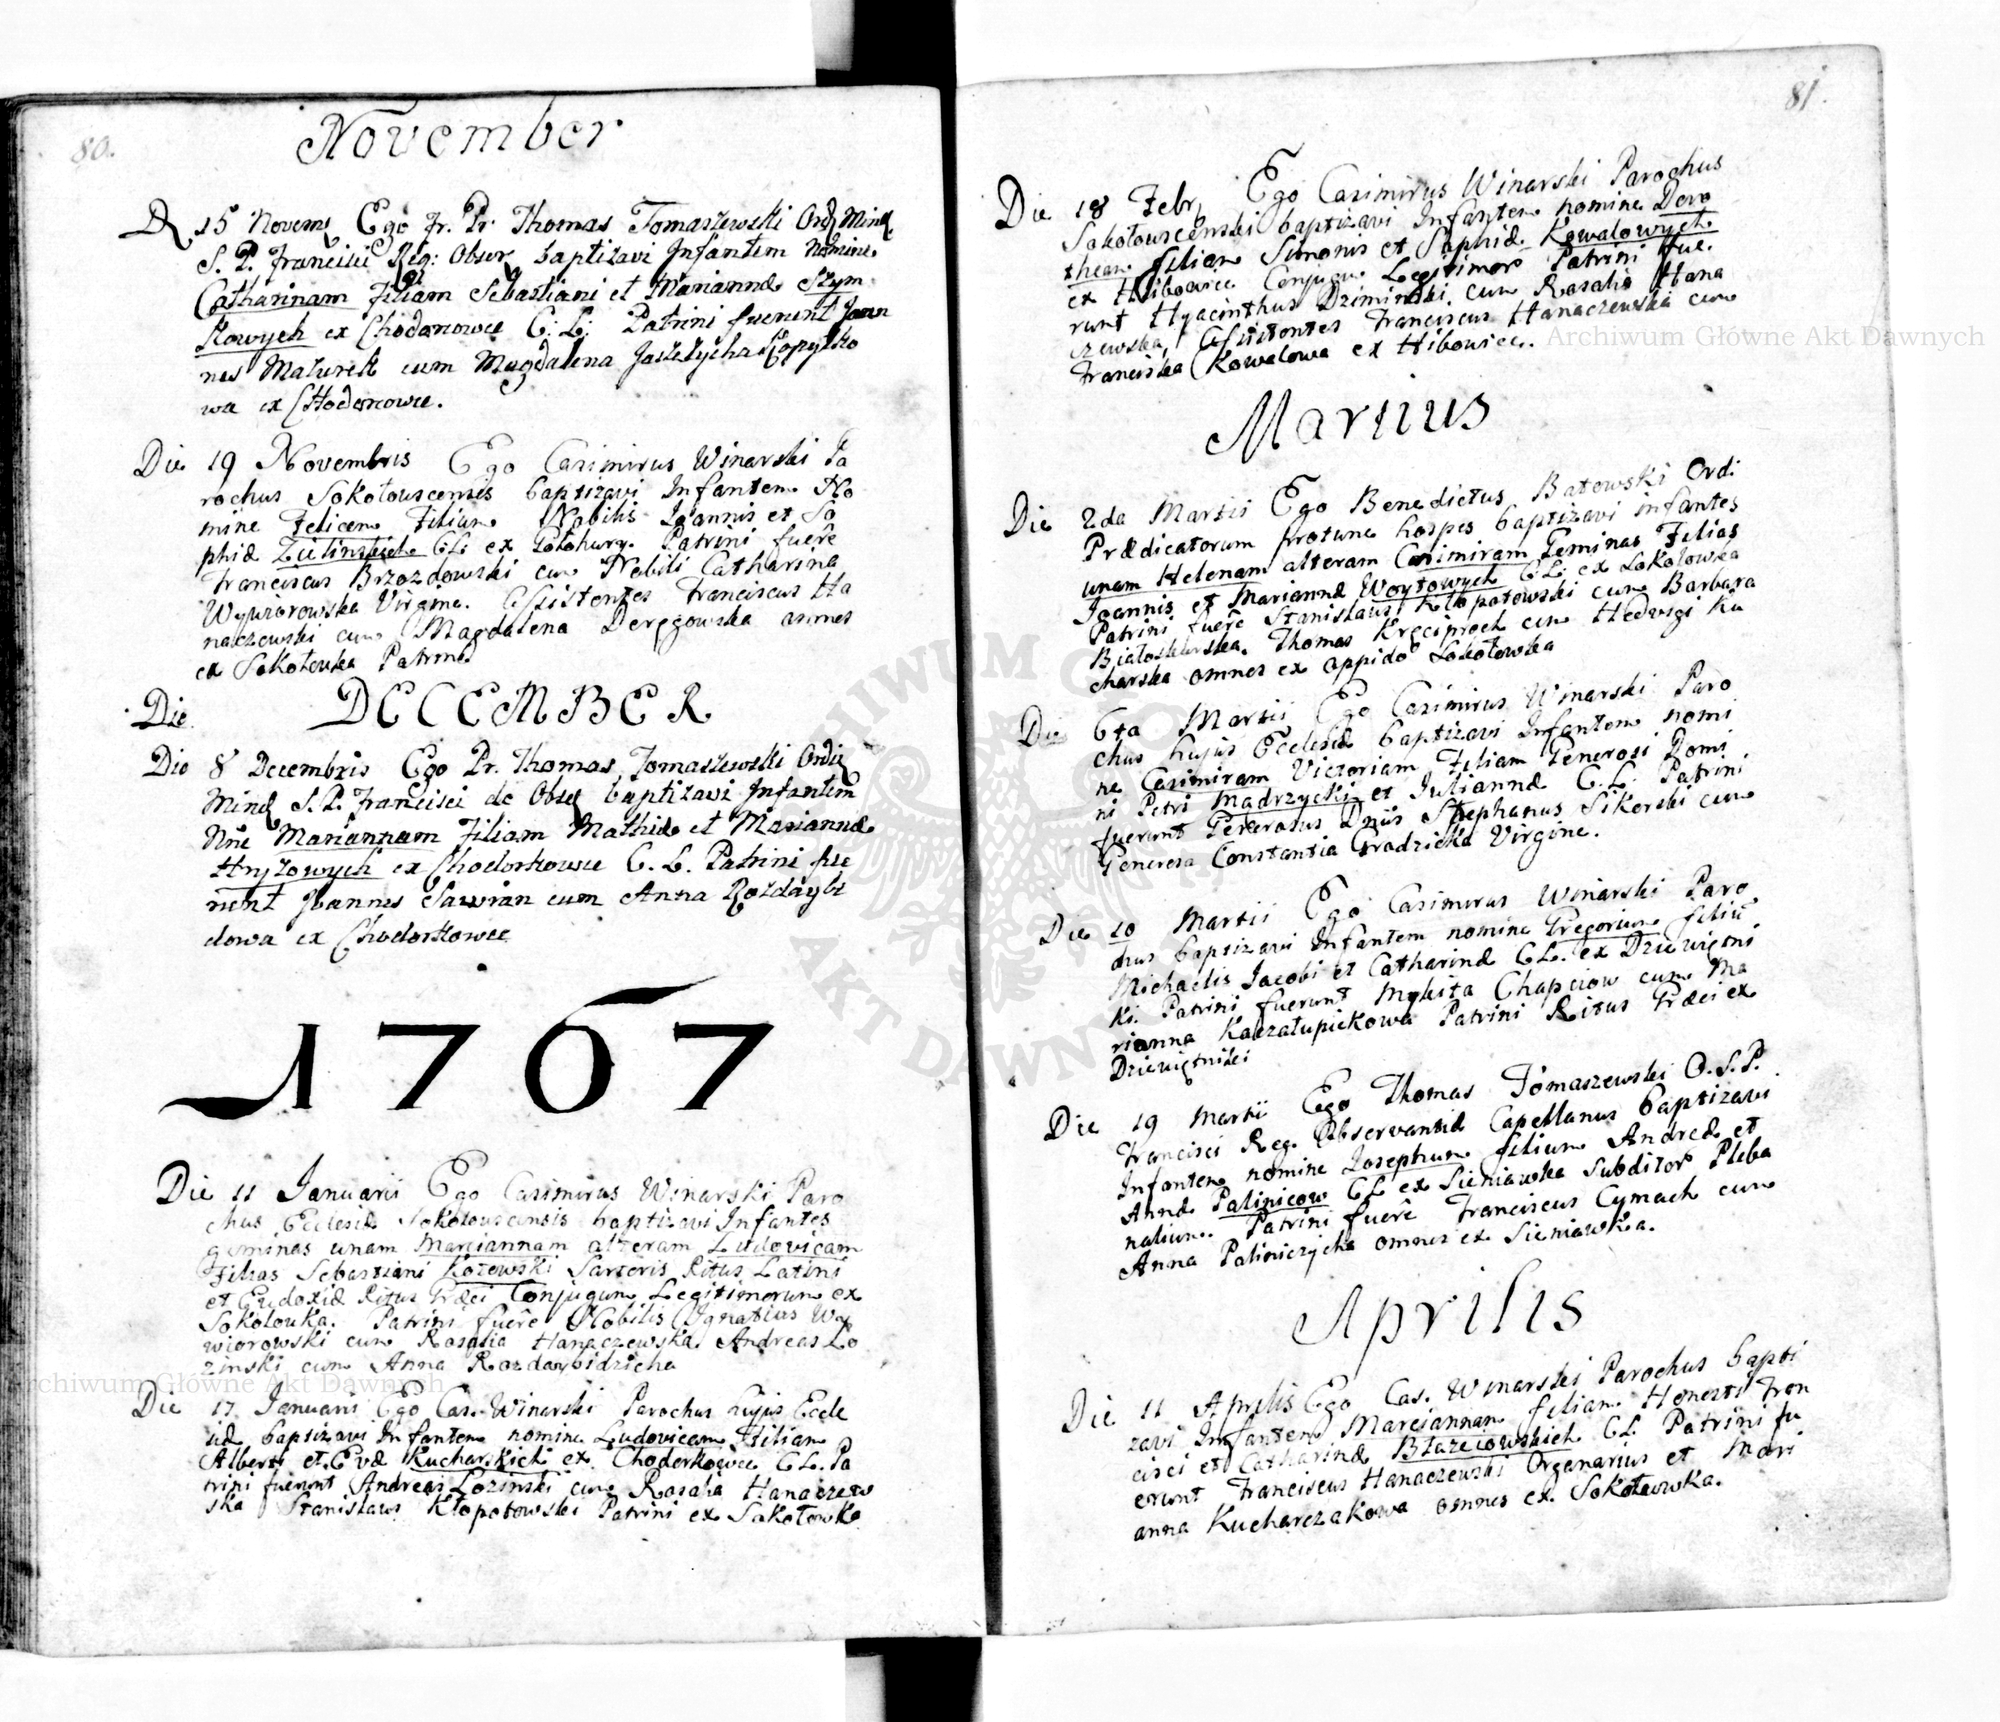 80.
November
D 15 Novem Ego Fr. Pr. Thomas Tomaszewski Ord Min
S. P. Francisci Reg: Obser baptizavi Infantem Nomine
Catharinam Filiam Sebastiani et Mariannæ Szym
kowych ex Chodorowce C: L: Patrini fuerunt Joan
nes Mazurek cum Magdalena
wa ex
Die 19 Novembris Ego Casimirus Winarski Pa
rochus Sokołouscensis baptizavi Infantem No
mine Felicem Filium Nobilis Joannis et So
phiæ Zielinskich CL ex Patrini fuere
Franciscus Brzozdowski cum Nobili Catharina
Wywiorowska Virgine. Assistentes Franciscus Ha
naczewski cum Magdalena Deręgowska omnes
ex Sokołouka Patrini
Die DECEMBER
Die 8 Decembris Ego Pr. Thomas Tomaszewski Ordi
Min S. P. Francisci de Obser baptizavi Infantem
Nne Mariannam Filiam Mathiæ et Mariannæ
Hryzowych ex Chodorkowce C. L. Patrini fue
runt Joannes cum Anna Rozdayb
dowa ex Chodorkowce
1767
Die 11 Januarii Ego Casimirus Winarski Paro
chus Ecclesiæ Sokołouscensis baptizavi Infantes
geminas unam Mariannam alteram Ludovicam
Filias Sebastiani Kozewski Sartoris Ritus Latini
et Eudoxiæ Ritus Græci Conjugum Legitimorum ex
Sokołouka. Patrini fuere Nobilis Ignatius Wy
wiorowski cum Rosalia Hanaczewska Andreas Lo
zinski cum Anna Rozdaybidzicha
Die 17 Januarii Ego Cas. Winarski Parochus hujus Eccle
siæ baptizavi Infantem nomine Ludovicam Filiam
Alberti et Evæ Kucharskich ex Chodorkowce CL. Pa
trini fuerunt Andreas Lozinski cum Rosalia Hanaczew
ska Stanislaus Kłopotowski Patrini ex Sokołowka
81.
Die 18 Febr Ego Casimirus Winarski Parochus
Sokołouscensis baptizavi Infantem nomine Doro
theam filiam Simonis et Sophiæ Kowalowych
ex Hlibowice Conjugum Legitimor Patrini fue
runt Hyacinthus Dziminski cum Rosalia Hana
czewska, Assistentes Franciscus Hanaczewski cum
Franciska Kowalowa ex Hlibowice.
Martius
Die 2da Martii Ego Benedictus Batowski Ordi
Prædicatorum protunc hospes baptizavi infantes
unam Helenam alteram Casimiram Geminas Filias
Joannis et Mariannæ Woytowych CL: ex Sokołowka
Patrini fuere Stanislaus Kłopotowski cum Barbara
Białoskurska. Thomas Kręciproch cum Hedvigi Ku
charska omnes ex oppido Sokołowka
Die 6ta Martii Ego Casimirus Winarski Paro
chus hujus Ecclesiæ baptizavi Infantem nomi
ne Casimiram Victoriam Filiam Generosi Domi
ni Petri Mądrzycki et Juliannæ C. L. Patrini
fuerunt Generosus Dnus Stephanus Sikorski cum
Generosa Constantia Gradzicka Virgine.
Die 10 Martii Ego Casimirus Winarski Paro
chus baptizavi Infantem nomine Gregorium filiu
Michaelis Jacobi et Catharinæ CL. ex Dziewiętni
ki. Patrini fuerunt Mykita Chapciow cum Ma
rianna Kaczałupickowa Patrini Ritus Græci ex
Dziewiętniki
Die 19 Martii Ego Thomas Tomaszewski O. S. P.
Francisci Reg. Observantiæ Capellanus baptizavi
Infantem nomine Josephum filium Andreæ et
Annæ Palinicow CL ex Sieniawka Subditor Pleba
nalium. Patrini fuere Franciscus Cymach cum
Anna Paliniczycha omnes ex Sieniawka.
Aprilis
Die 11 Aprilis Ego Cas. Winarski Parochus bapti
zavi Infantem Mariannam filiam Honesti Fran
cisci et Catharinæ Błazeiowskich CL Patrini fu
erunt Franciscus Hanaczewski Organarius et Mari
anna Kucharczakowa omnes ex Sokołowka.
Archiwum Główne Akt Dawnych
Archiwum Główne Akt Dawnych
ARCHIWUM GŁÓWNE
AKT DAWNYCH